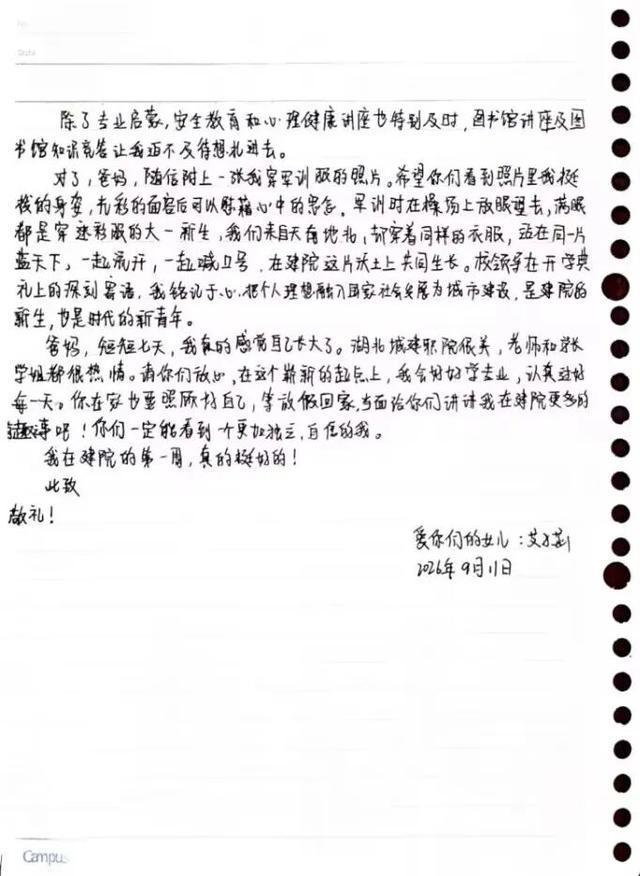 No.
Date
除了专业启蒙,安全教育和心理健康讲座也特别及时,图书馆讲座及图
书馆知识竞答让我迫不及待想扎进去。
对了,爸妈,随信附上一张我穿军训服的照片。希望你们看到照片里我挺
拔的身姿,光彩的面容后可以慰藉心中的思念。军训时在操场上放眼望去,满眼
都是穿迷彩服的大一新生,我们来自天南地北,却穿着同样的衣服,站在同一片
蓝天下,一起流汗,一起喊口号,在建院这片沃土上共同生长。校领导在开学典
礼上的深刻寄语,我铭记于心,把个人理想融入国家社会发展为城市建设,是建院的
新生,也是时代的新青年。
爸妈,短短七天,我真的感觉自己长大了。湖北城建职院很美,老师和学长
学姐都很热情。请你们放心,在这个崭新的起点上,我会好好学专业,认真过好
每一天。你在安也要照顾好自己,等放假回家,当面给你们讲讲我在建院更多的
趣事吧!你们一定能看到一个更加独立,自信的我。
我在建院的第一周,真的挺好的!
此致
敬礼!
爱你们的女儿:艾
2026年9月11日
Campus